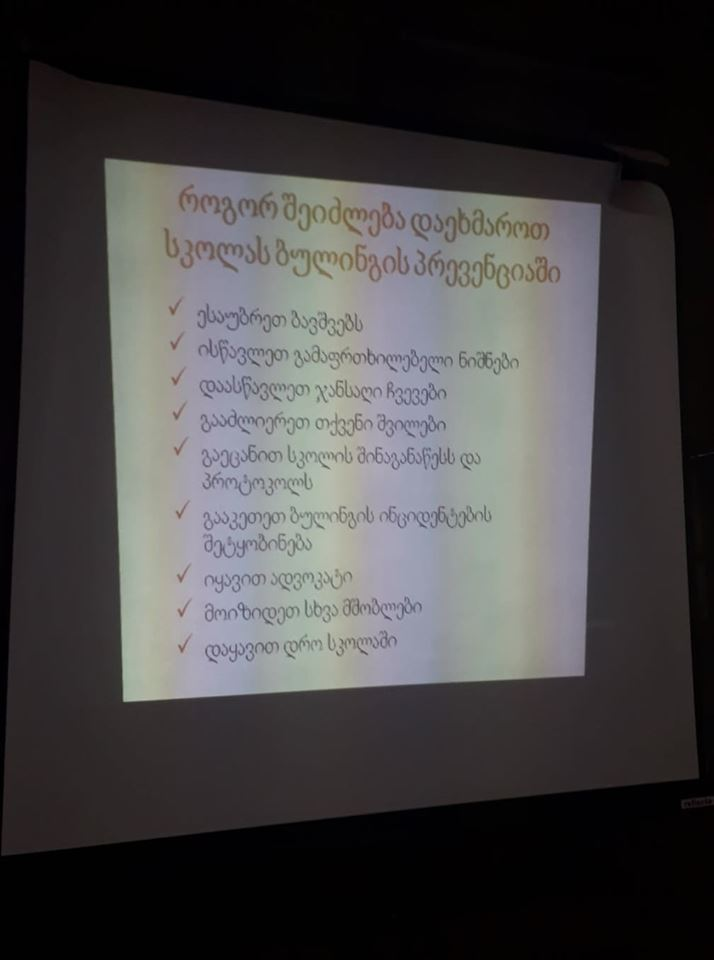 როგორ შეიძლება დაეხმაროთ
სკოლას ბულინგის პრევენციაში
✓ ესაუბრეთ ბავშვებს
✓ ისწავლეთ გამაფრთხილებელი ნიშნები
✓ დაასწავლეთ ჯანსაღი ჩვევები
✓ გააძლიერეთ თქვენი შვილები
✓ გაეცანით სკოლის შინაგანაწესს და
პროტოკოლს
✓ გააკეთეთ ბულინგის ინციდენტების
შეტყობინება
✓ იყავით ადვოკატი
✓ მოიზიდეთ სხვა მშობლები
✓ დაყავით დრო სკოლაში